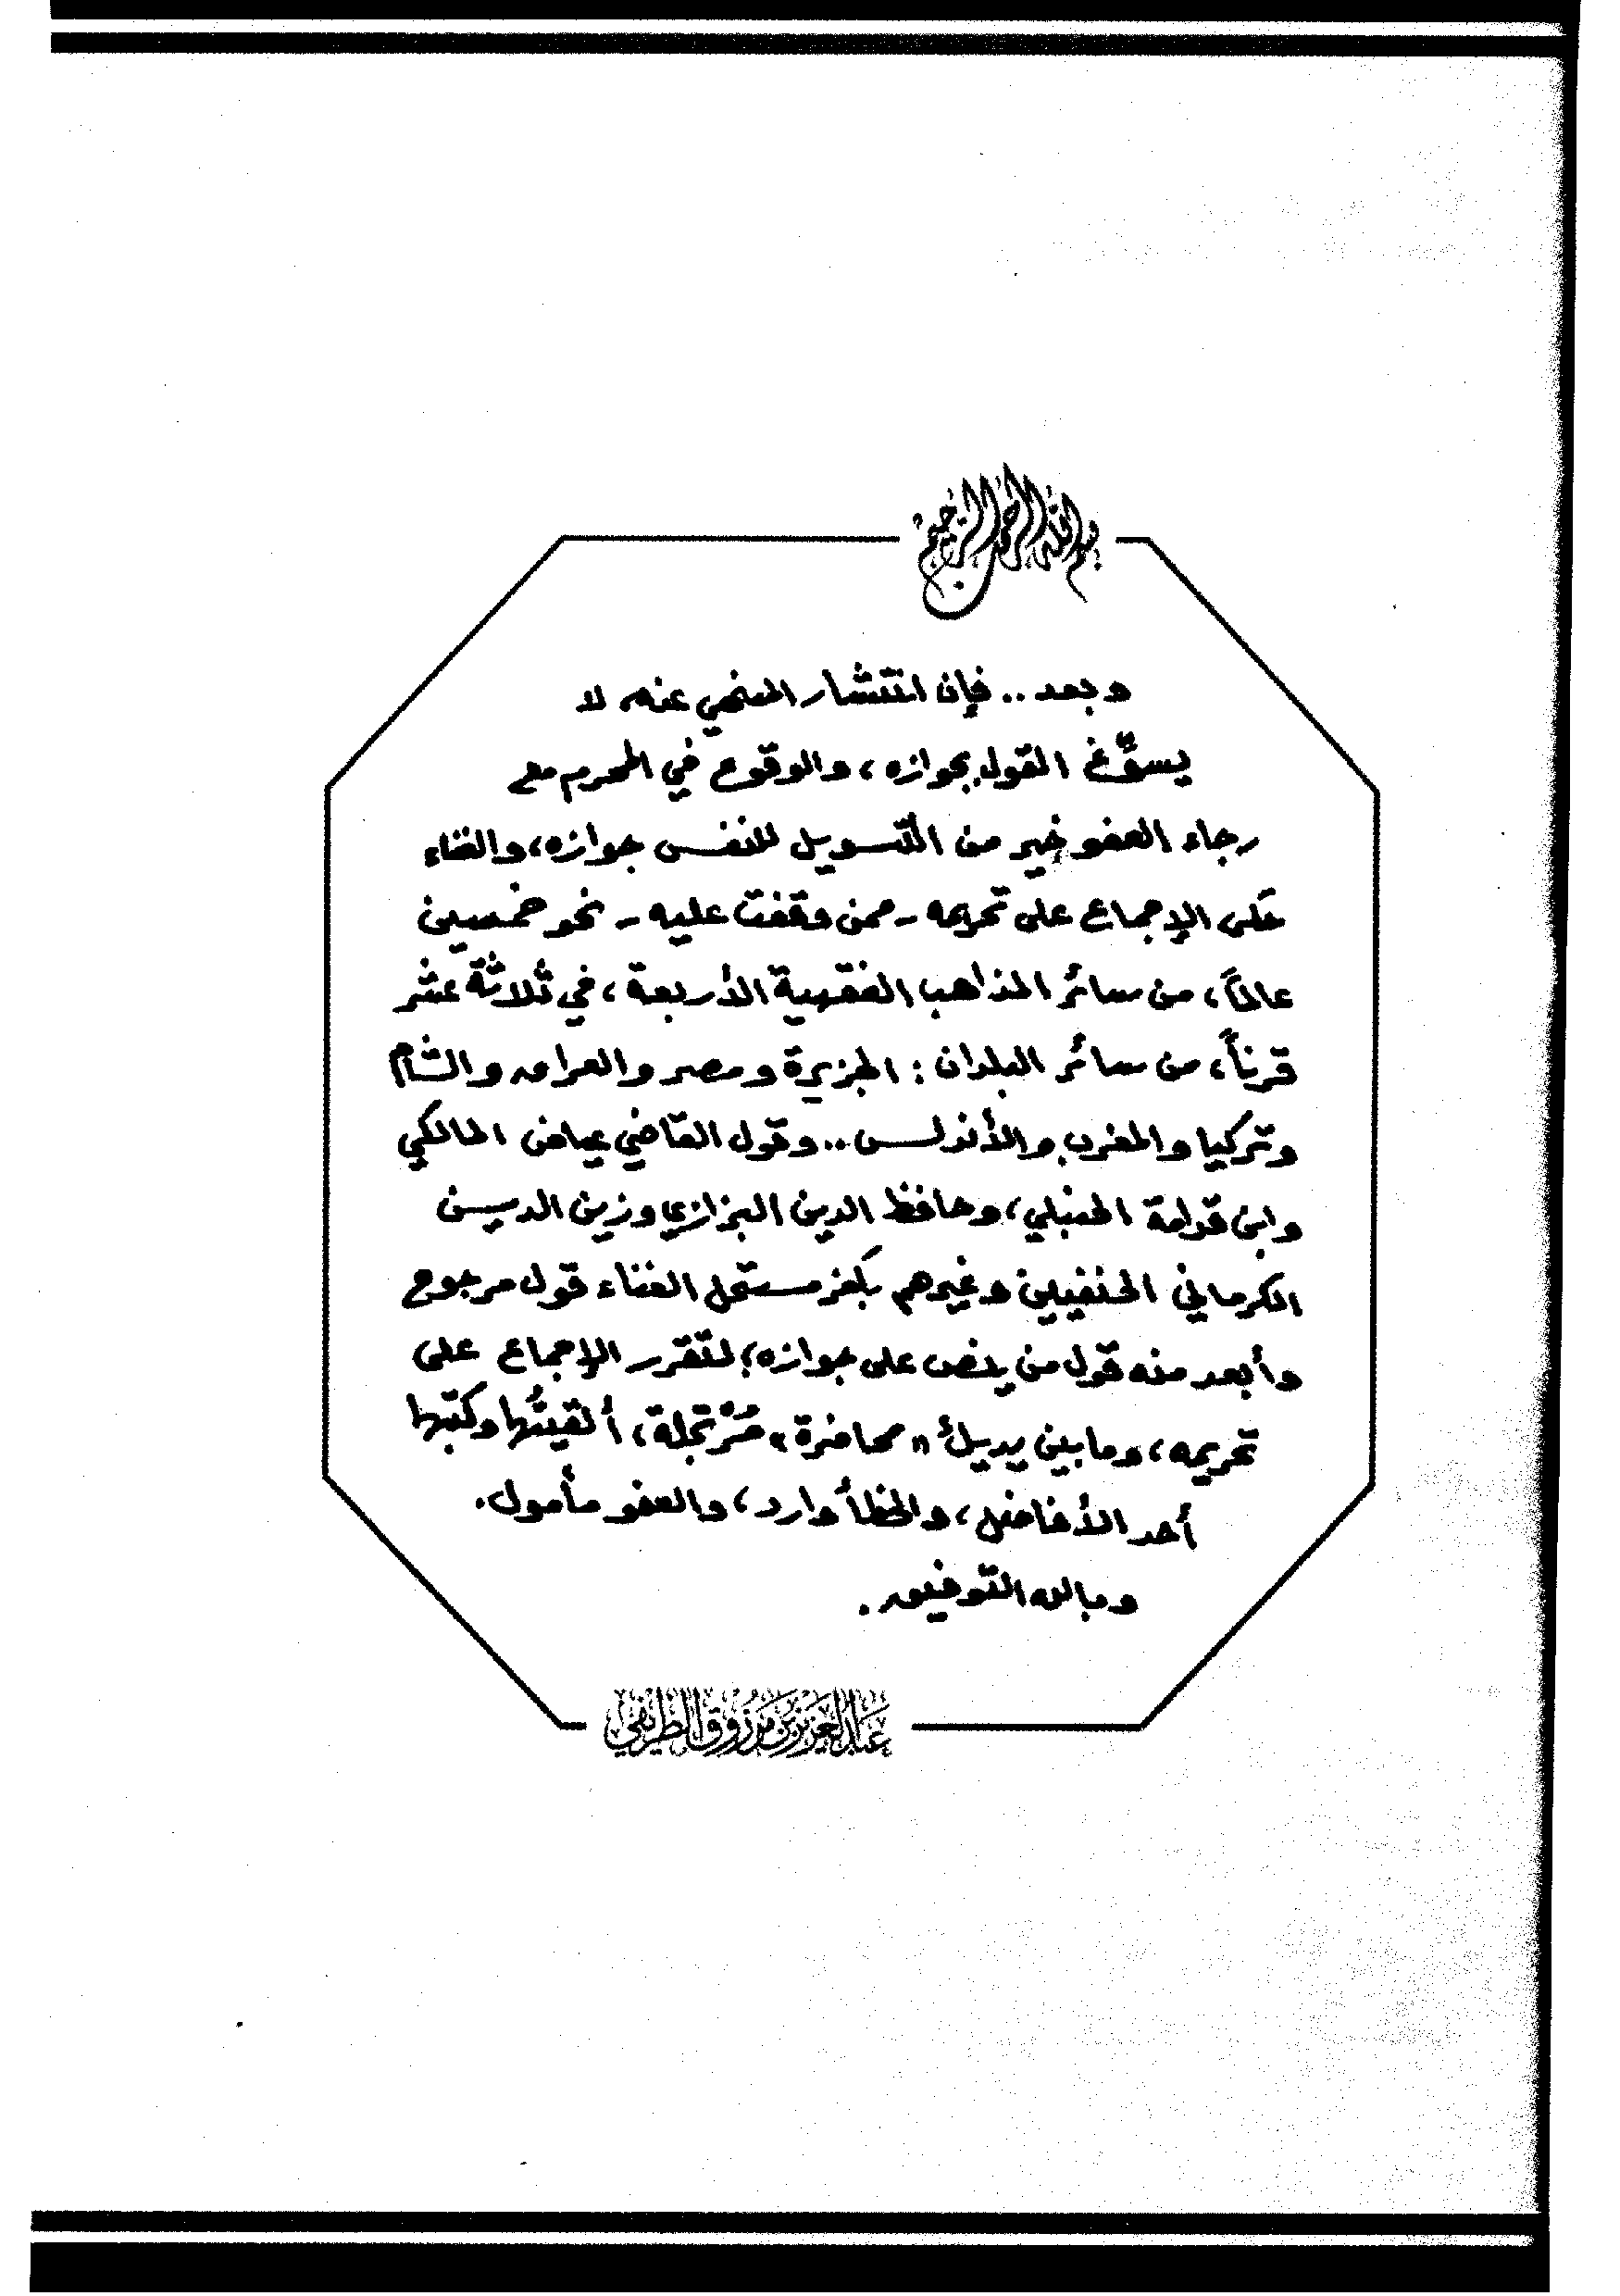 بسم الله الرحمن الرحيم
وبعد .. فإن انتشار المنهي عنه لا
يسوِّغ القول بجوازه، والوقوع في المحرم مع
رجاء العفو خير من التسويل للنفس جوازه، والغناء
حَكى الإجماع على تحريمه - ممن وقفت عليه - نحو خمسين
عالماً، من سائر المذاهب الفقهية الأربعة، في ثلاثة عشر
قرناً، من سائر البلدان : الجزيرة ومصر والعراق والشام
وتركيا والمغرب والأندلس .. وقول القاضي عياض المالكي
وابن قدامة الحنبلي، وحافظ الدين البزازي وزين الدين
الكرماني الحنفيين وغيرهم بكفر مستحل الغناء قول مرجوح
وأبعد منه قول من ينص على جوازه؛ لتقرر الإجماع على
تحريمه، وما بين يديك « محاضرة » مُرْتجلة، ألقيتُها وكتبها
أحد الأفاضل، والخطأ وارد، والعفو مأمول.
وبالله التوفيق .
عبد العزيز بن مرزوق الطريفي